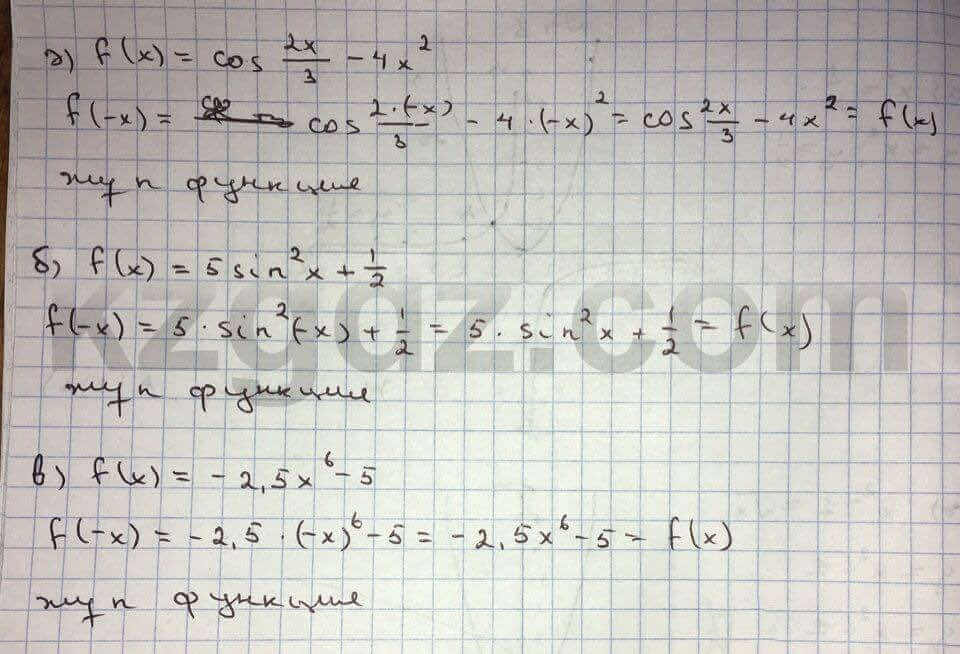 а) f(x) = cos 2x/3 - 4x²
f(-x) = cos 2·(-x)/3 - 4·(-x)² = cos 2x/3 - 4x² = f(x)
жұп функция
б) f(x) = 5 sin²x + 1/2
f(-x) = 5·sin²(-x) + 1/2 = 5·sin²x + 1/2 = f(x)
жұп функция
в) f(x) = -2,5x⁶ - 5
f(-x) = -2,5·(-x)⁶ - 5 = -2,5x⁶ - 5 = f(x)
жұп функция
kzgdz.com